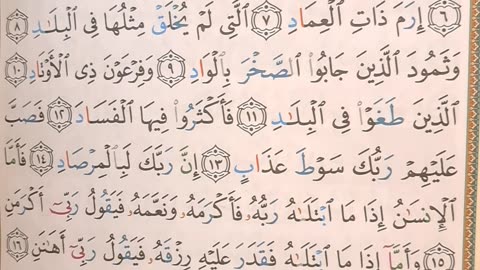 ۝٦ إِرَمَ ذَاتِ الْعِمَادِ ۝٧ الَّتِي لَمْ يُخْلَقْ مِثْلُهَا فِي الْبِلَـٰدِ ۝٨
وَثَمُودَ الَّذِينَ جَابُوا۟ الصَّخْرَ بِالْوَادِ ۝٩ وَفِرْعَوْنَ ذِي الْأَوْتَادِ ۝١٠
الَّذِينَ طَغَوْا۟ فِي الْبِلَـٰدِ ۝١١ فَأَكْثَرُوا۟ فِيهَا الْفَسَادَ ۝١٢ فَصَبَّ
عَلَيْهِمْ رَبُّكَ سَوْطَ عَذَابٍ ۝١٣ إِنَّ رَبَّكَ لَبِالْمِرْصَادِ ۝١٤ فَأَمَّا
الْإِنسَـٰنُ إِذَا مَا ابْتَلَىٰهُ رَبُّهُۥ فَأَكْرَمَهُۥ وَنَعَّمَهُۥ فَيَقُولُ رَبِّيٓ أَكْرَمَنِ
۝١٥ وَأَمَّآ إِذَا مَا ابْتَلَىٰهُ فَقَدَرَ عَلَيْهِ رِزْقَهُۥ فَيَقُولُ رَبِّيٓ أَهَـٰنَنِ ۝١٦